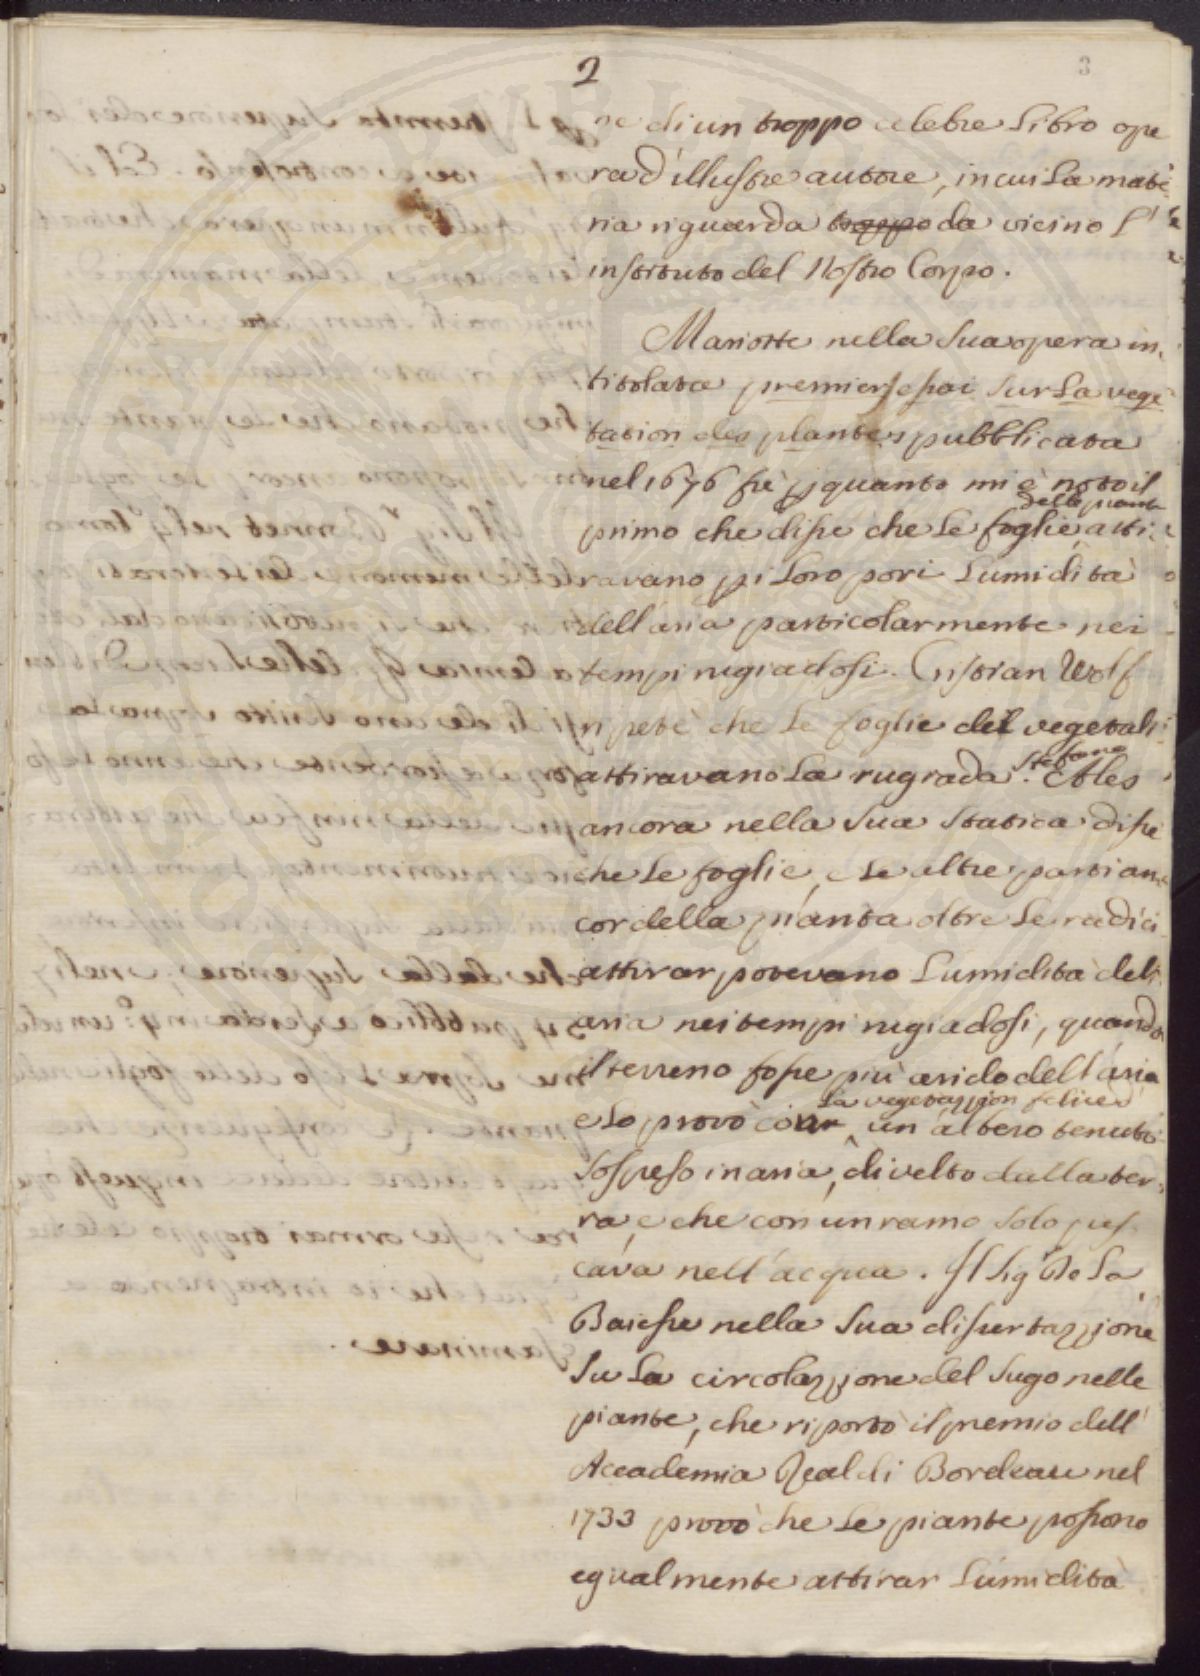 2
3
ne di un troppo celebre Libro ope
ra d'illustre autore, in cui La mate
ria riguarda troppo da vicino L'
instituto del Nostro Corpo.
Mariotte nella sua opera in
titolata premier essai sur La vege
tation des plantes pubblicata
nel 1676 fù p quanto mi è noto il
delle piante
primo che disse che Le foglie atti
ravano p i Loro pori L'umidità
dell'aria particolarmente nei
tempi rugiadosi. Cristian Wolf
ripetè che Le foglie dei vegetali
attiravano La rugiada. Stefano Ales
ancora nella sua statica disse
che Le foglie, e Le altre parti an
cor della pianta oltre Le radici
attirar potevano L'umidità dell'
aria nei tempi rugiadosi, quando
il terreno fosse più arido dell'aria
La vegetazzion felice d'
e Lo provò con un albero tenuto
sospeso in aria, divelto dalla ter
ra, e che con un ramo solo pes
cava nell'acqua. Il Sig De La
Baisse nella sua dissertazzione
su La circolazzione del sugo nelle
piante, che riportò il premio dell'
Accademia Real di Bordeau nel
1733 provò che Le piante possono
egualmente attirar L'umidità